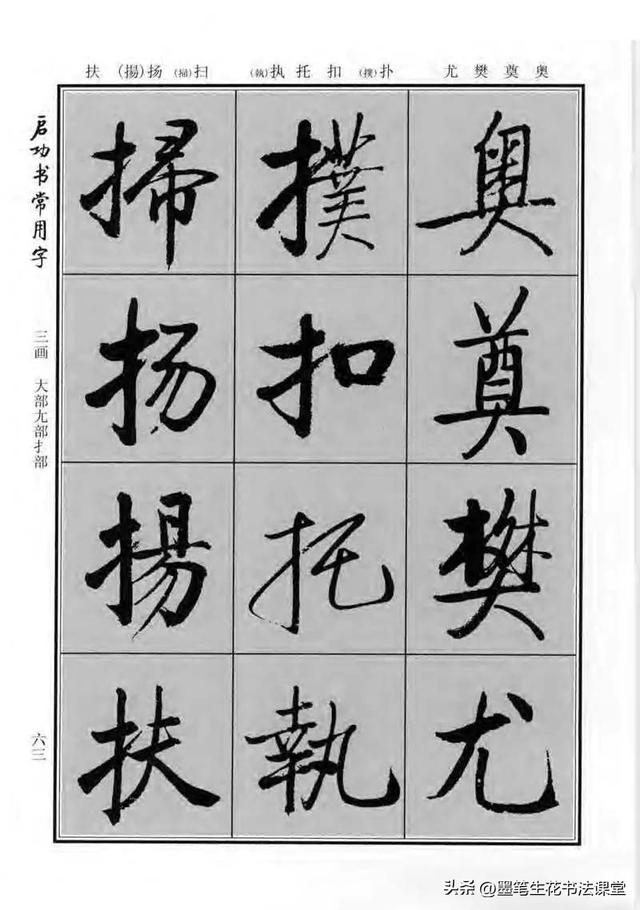 扶 (揚)扬 (掃)扫 (執)执 托 扣 (撲)扑 尤 樊 奠 奥
启功书常用字
三画 大部尢部扌部
六三
奥 奠 樊 尤
撲 扣 托 執
掃 扬 揚 扶
头条 @墨笔生花书法课堂